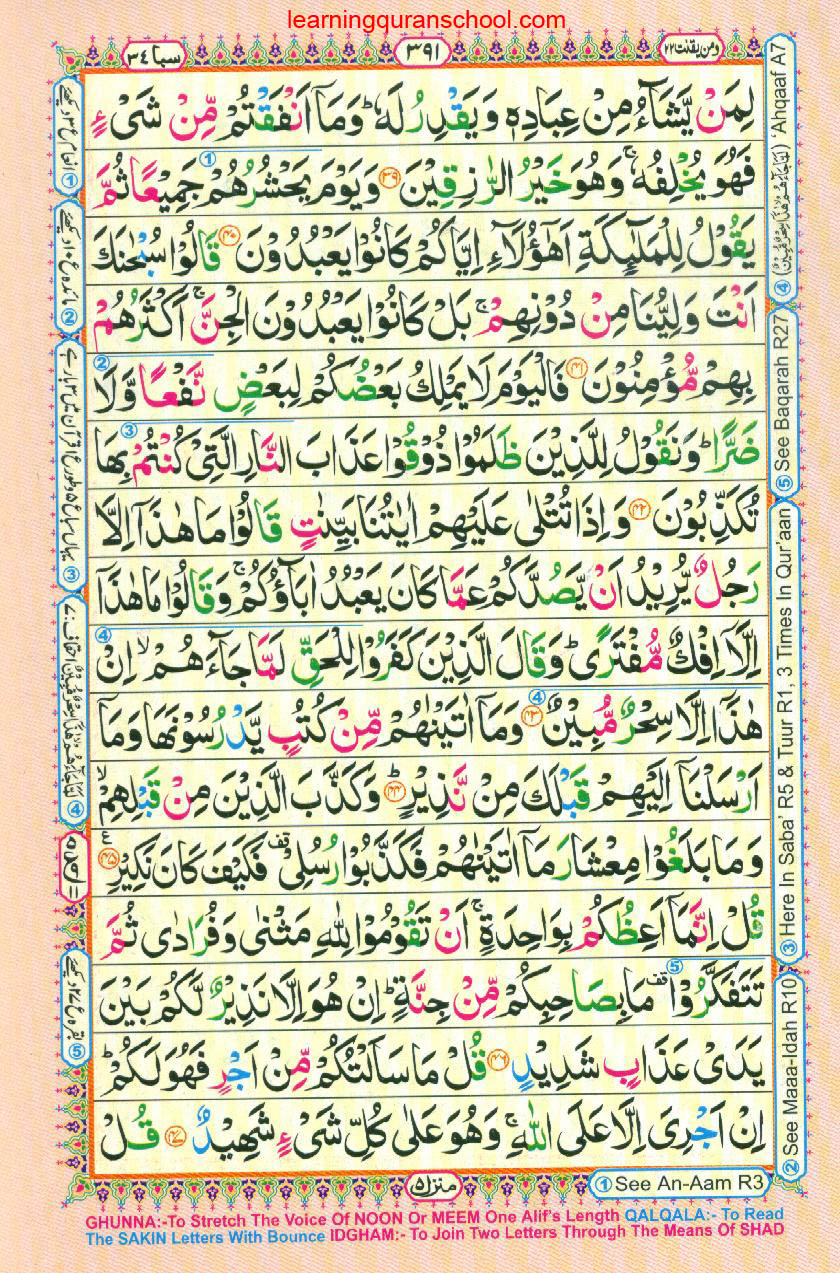 learningquranschool.com
ومن یقنت ۲۲
۳۹۱
سبا ۳٤
لِمَنْ یَّشَآءُ مِنْ عِبَادِهٖ وَ یَقْدِرُ لَهٗ ؕ وَ مَاۤ اَنْفَقْتُمْ مِّنْ شَیْءٍ
فَهُوَ یُخْلِفُهٗ ۚ وَ هُوَ خَیْرُ الرّٰزِقِیْنَ ۝۳۹ وَ یَوْمَ یَحْشُرُهُمْ جَمِیْعًا ثُمَّ
یَقُوْلُ لِلْمَلٰٓىِٕكَةِ اَهٰۤؤُلَآءِ اِیَّاكُمْ كَانُوْا یَعْبُدُوْنَ ۝۴۰ قَالُوْا سُبْحٰنَكَ
اَنْتَ وَلِیُّنَا مِنْ دُوْنِهِمْ ۚ بَلْ كَانُوْا یَعْبُدُوْنَ الْجِنَّ ۚ اَكْثَرُهُمْ
بِهِمْ مُّؤْمِنُوْنَ ۝۴۱ فَالْیَوْمَ لَا یَمْلِكُ بَعْضُكُمْ لِبَعْضٍ نَّفْعًا وَّ لَا
ضَرًّا ؕ وَ نَقُوْلُ لِلَّذِیْنَ ظَلَمُوْا ذُوْقُوْا عَذَابَ النَّارِ الَّتِیْ كُنْتُمْ بِهَا
تُكَذِّبُوْنَ ۝۴۲ وَ اِذَا تُتْلٰى عَلَیْهِمْ اٰیٰتُنَا بَیِّنٰتٍ قَالُوْا مَا هٰذَاۤ اِلَّا
رَجُلٌ یُّرِیْدُ اَنْ یَّصُدَّكُمْ عَمَّا كَانَ یَعْبُدُ اٰبَآؤُكُمْ ۚ وَ قَالُوْا مَا هٰذَاۤ
اِلَّاۤ اِفْكٌ مُّفْتَرًى ؕ وَ قَالَ الَّذِیْنَ كَفَرُوْا لِلْحَقِّ لَمَّا جَآءَهُمْ ۙ اِنْ
هٰذَاۤ اِلَّا سِحْرٌ مُّبِیْنٌ ۝۴۳ وَ مَاۤ اٰتَیْنٰهُمْ مِّنْ كُتُبٍ یَّدْرُسُوْنَهَا وَ مَاۤ
اَرْسَلْنَاۤ اِلَیْهِمْ قَبْلَكَ مِنْ نَّذِیْرٍ ؕ۝۴۴ وَ كَذَّبَ الَّذِیْنَ مِنْ قَبْلِهِمْ ۙ
وَ مَا بَلَغُوْا مِعْشَارَ مَاۤ اٰتَیْنٰهُمْ فَكَذَّبُوْا رُسُلِیْ قف فَكَیْفَ كَانَ نَكِیْرِ ۝۴۵
قُلْ اِنَّمَاۤ اَعِظُكُمْ بِوَاحِدَةٍ ۚ اَنْ تَقُوْمُوْا لِلّٰهِ مَثْنٰى وَ فُرَادٰى ثُمَّ
تَتَفَكَّرُوْا قف مَا بِصَاحِبِكُمْ مِّنْ جِنَّةٍ ؕ اِنْ هُوَ اِلَّا نَذِیْرٌ لَّكُمْ بَیْنَ
یَدَیْ عَذَابٍ شَدِیْدٍ ۝۴۶ قُلْ مَا سَاَلْتُكُمْ مِّنْ اَجْرٍ فَهُوَ لَكُمْ ؕ
اِنْ اَجْرِیَ اِلَّا عَلَى اللّٰهِ ۚ وَ هُوَ عَلٰى كُلِّ شَیْءٍ شَهِیْدٌ ۝۴۷ قُلْ
④ 'Ahqaaf A7
⑤ See Baqarah R27
③ Here In Saba' R5 & Tuur R1, 3 Times In Qur'aan
② See Maaa-Idah R10
① See An-Aam R3
منزل ۵
GHUNNA:-To Stretch The Voice Of NOON Or MEEM One Alif's Length QALQALA:- To Read
The SAKIN Letters With Bounce IDGHAM:- To Join Two Letters Through The Means Of SHAD